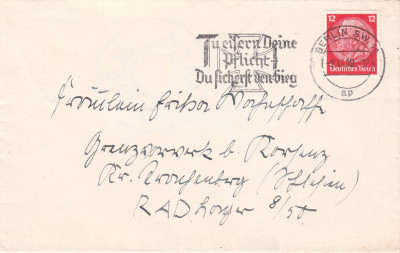 Tu eisern Deine
Pflicht
Du sicherst den Sieg
12 12
Deutsches Reich
BERLIN SW
ap
Fräulein
Grenzvorwerk b. Korsenz
Kr. Trachenberg (Schlesien)
RAD Lager 8/50